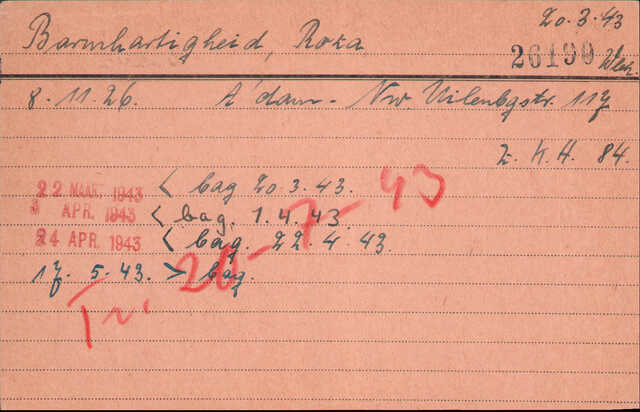 20.3.43
Barmhartigheid, Roza
26190
8.11.26. A'dam - Nw. Uilenbgstr. 117
Z. K. H. 84.
22 MAAR. 1943 < bag 20.3.43.
3 APR. 1943 < bag. 1.4.43.
24 APR. 1943 < bag. 22.4.43.
17.5.43. > bag.
Tr. 20-7-43